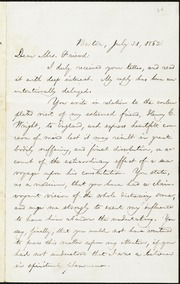 Boston, July 31, 1852.
Dear Mrs. Friend:
I duly received your letter, and
read it with deep interest. My reply has been un-
intentionally delayed.
You write in relation to the contem-
plated visit of my esteemed friend, Henry C.
Wright, to England, and express conside
of mind lest it may result in great
bodily suffering, and final dissolution, on ac-
count of the extraordinary effect of a sea
voyage upon his constitution. You state,
as a medium, that you have had a clair-
voyant vision of the whole distressing scene,
and urge me strongly to exert my influence
to have him abandon the undertaking. You
say, finally, that you would not have ventured
to press this matter upon my attention, if you
had not understood that I was a believer
in spiritual phenomena.